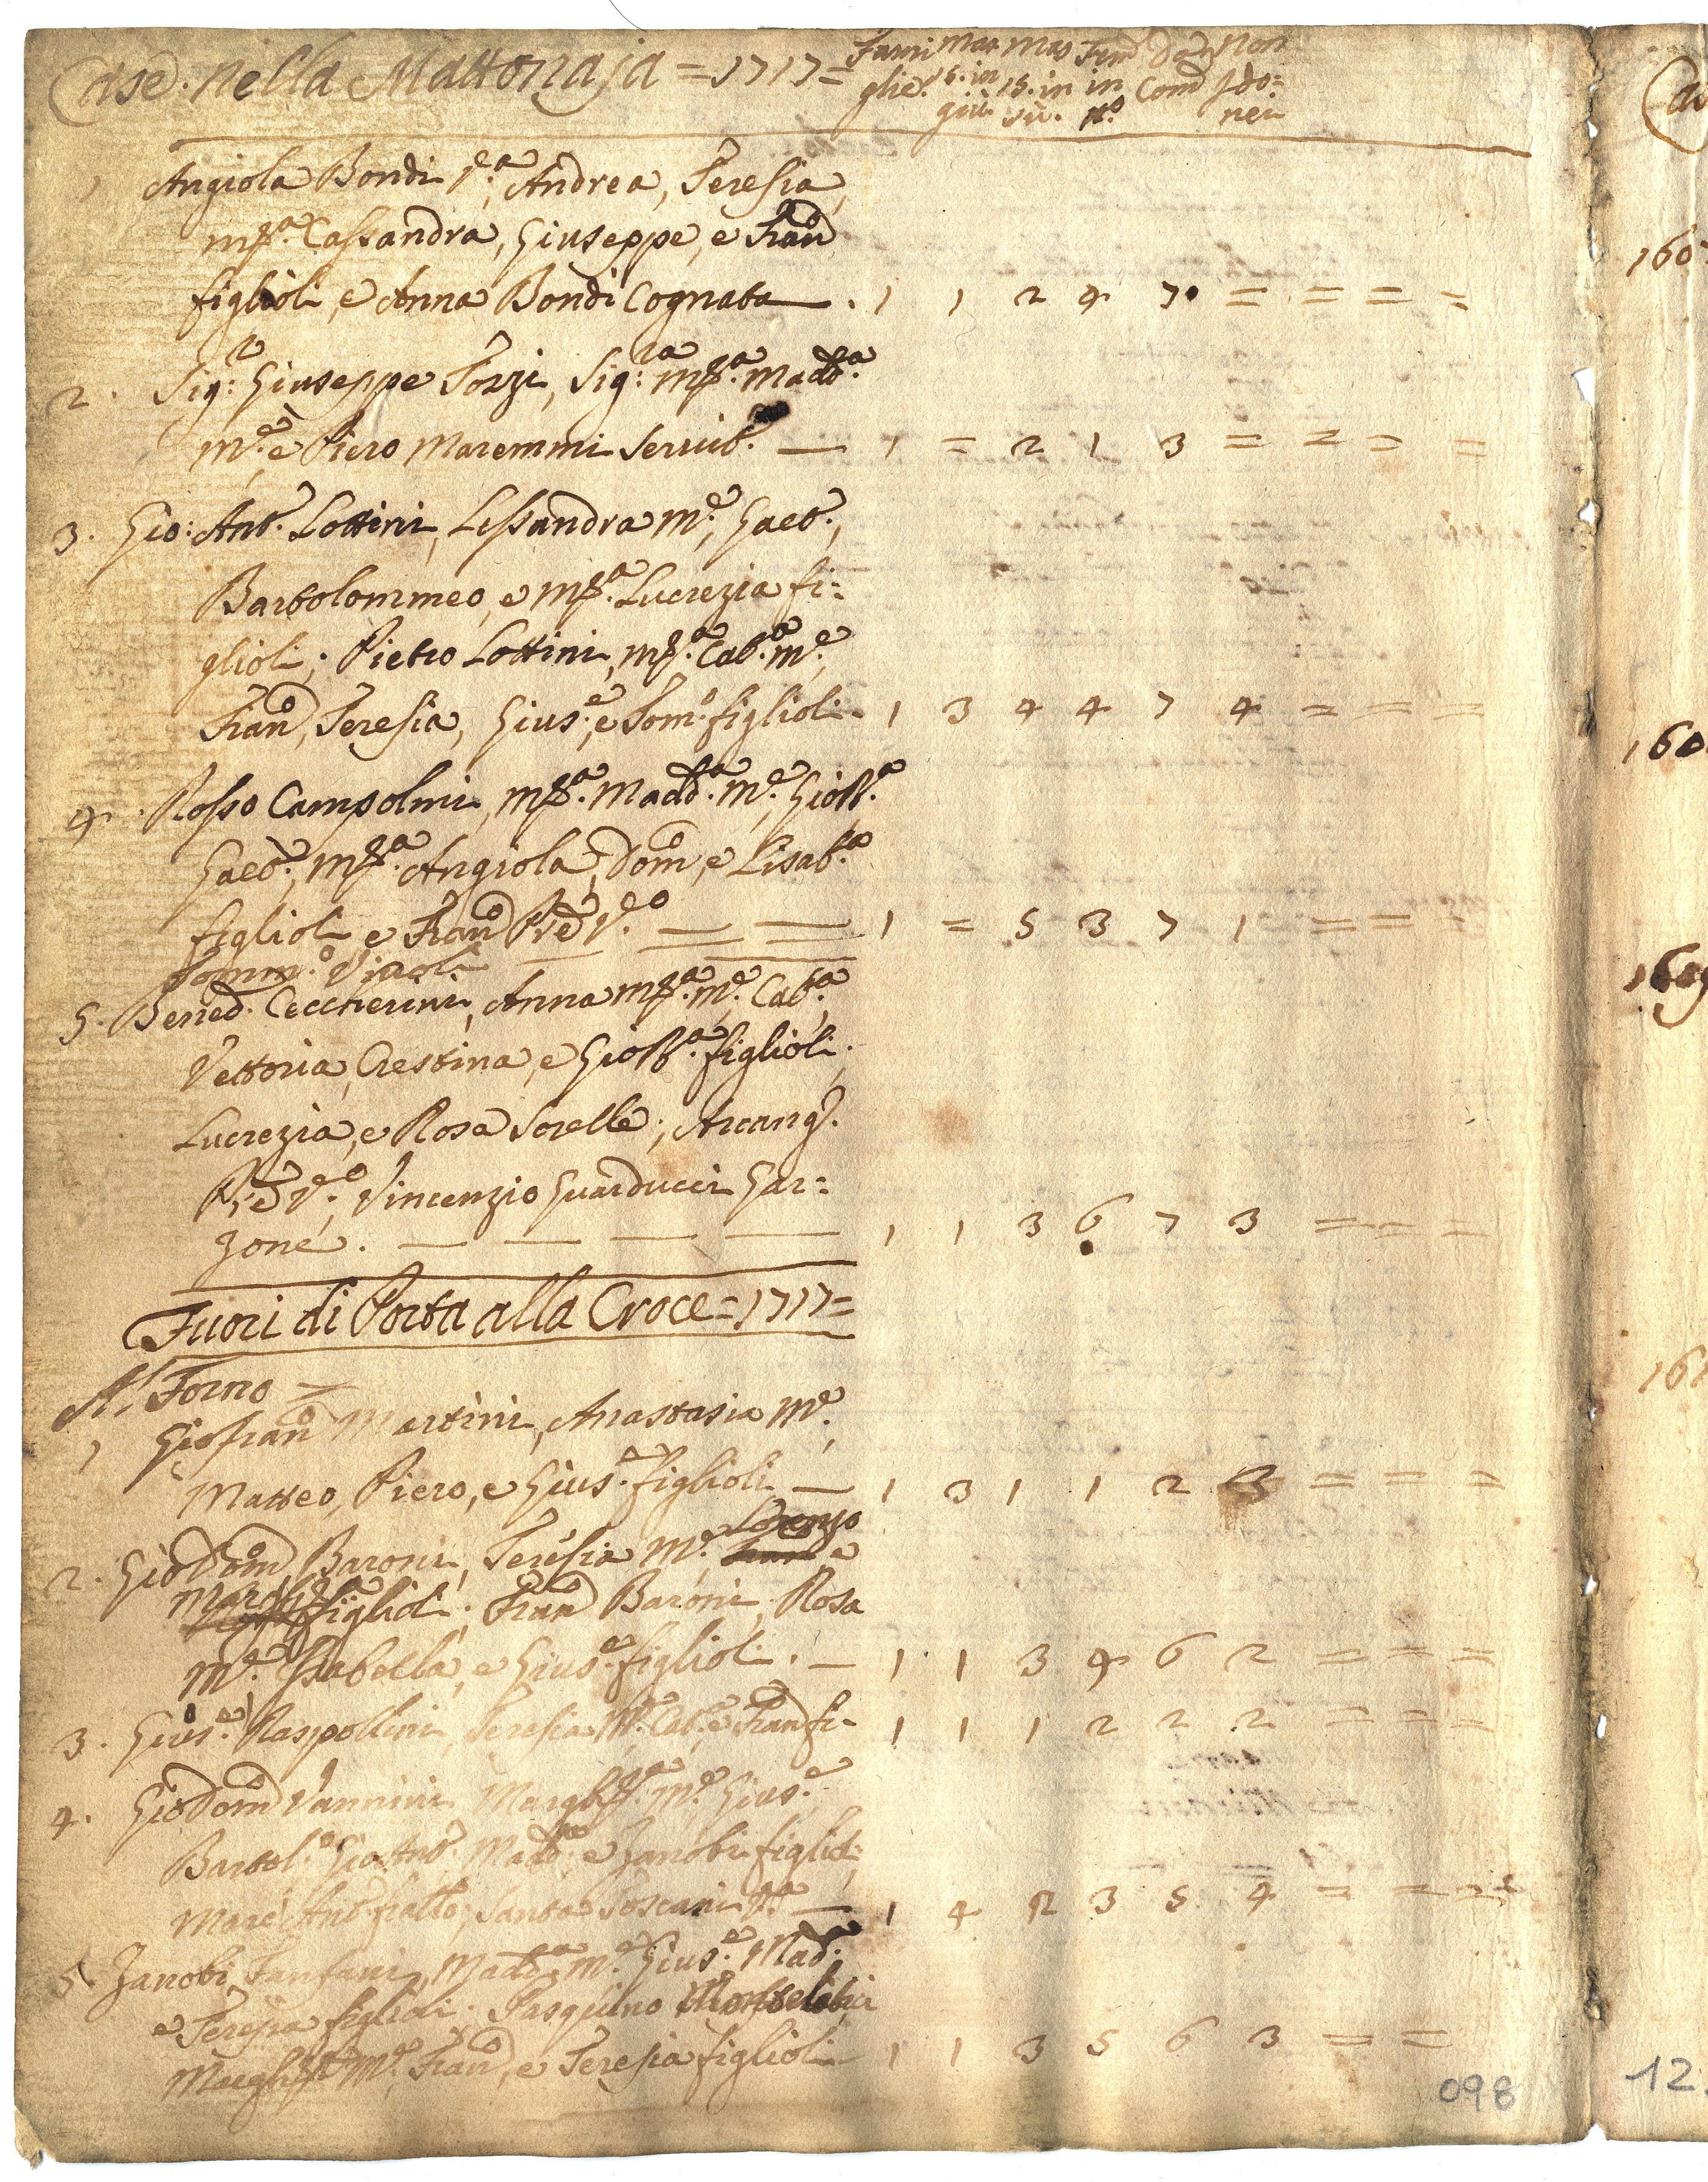 Case nella Mattonaja = 1717 = Fami Mas Mas Fem da Non
glie. 15. in 15. in in Com Ido=
giù sù. nei
1 Angiola Bondi V.a, Andrea, Teresia,
M.a Cassandra, Giuseppe, e Fran.o
figlioli, e Anna Bondi Cognata . 1 1 2 4 7 = = = =
2. Sig.r Giuseppe Tozzi, Sig.ra M.a Madd.a
M.e e Piero Maremmi Servit. — 1 = 2 1 3 = = = =
3. Gio: Ant.o Lottini, Lessandra M.e, Gaet.o,
Bartolommeo, e M.a Lucrezia fi=
glioli; Pietro Lottini, M.a Cat.a M.e,
Fran.o, Teresia, Gius.e, e Tom.o figlioli. 1 3 4 4 7 4 = = =
4. Rosso Campolmi, M.a Madd.a M.e, Gio B.a
Gaet.o, M.a Angiola, Dom.o, e Lisab.a
figlioli e Fran.o V.o — — 1 = 5 3 7 1 = = =
Tomm.o
5. Bened. Ceccherini, Anna M.a M.e, Cat.a
Vettoria, Crestina, e Gio B.a figlioli.
Lucrezia, e Rosa Sorelle; Arcang.
V.o, Vincenzio Guarducci Gar=
zone. — — — — 1 1 3 6 7 3 = = =
Fuori di Porta alla Croce = 1717 =
Al Forno =
1 Gio fran.o Martini, Anastasia M.e,
Matteo, Piero, e Gius.e figlioli — 1 3 1 1 2 3 = = =
Lorenzo
2. Gio Dom.o Baroni, Teresia M.e e
Margh.a figlioli; Fran.o Baroni, Rosa
M.e Isabella, e Gius.e figlioli. — 1 1 3 4 6 2 = = =
3. Gius.e Raspollini, Teresia M.e, Cat.a e Fran.o fi- 1 1 1 2 2 2 = = =
4. Gio Dom.o Vannini Margh.a M.e, Gius.e
Bartol.o Gio Ant.o Madd.a e Zanobi figlioli
Marc'Ant.o fratello, Santa Toscani V.a — 1 4 2 3 5 4 = = =
5 Zanobi Fanfani, Madd.a M.e Gius.e Mad.
e Teresia figlioli; Pasquino
Margh.a M.e, Fran.o, e Teresia figlioli — 1 1 3 5 6 3 = =
098
12